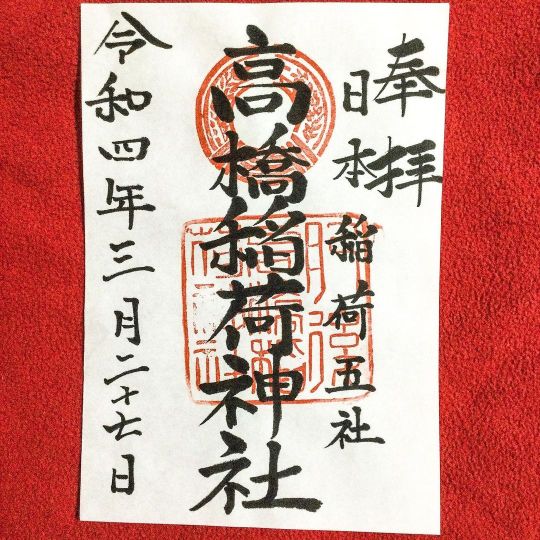 奉拝
日本稲荷五社
高橋稲荷神社
令和四年三月二十七日